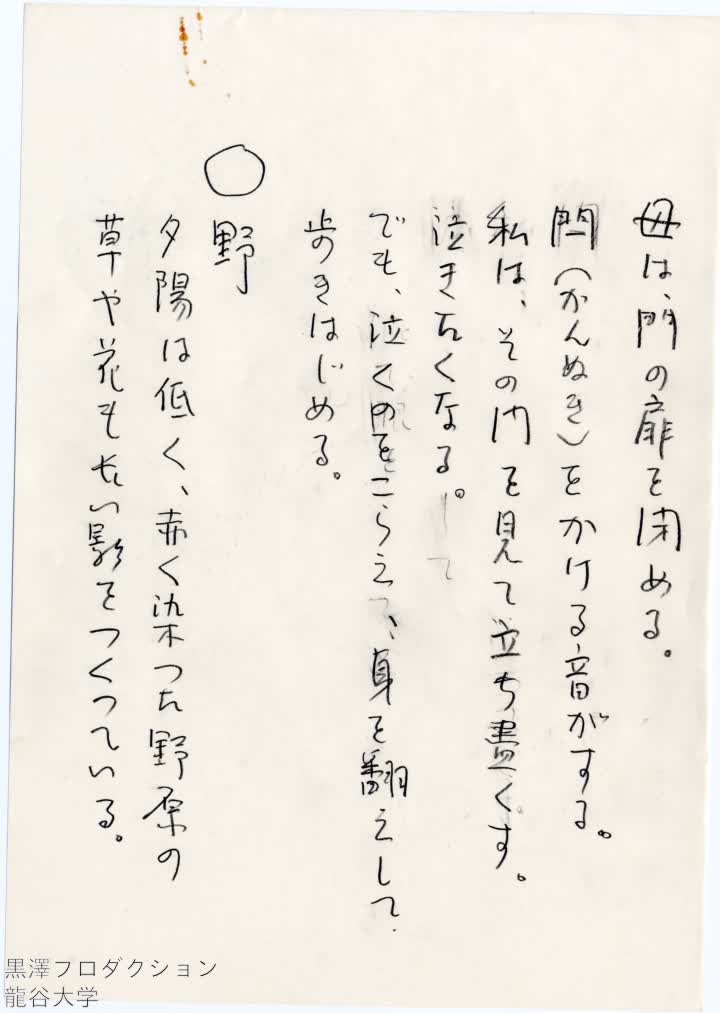 母は、門の扉を閉める。
閂（かんぬき）をかける音がする。
私は、その門を見て立ち盡くす。
泣きたくなる。
でも、泣くのをこらえて、身を翻えして
歩きはじめる。
○ 野
夕陽は低く、赤く染つた野原の
草や花も長い影をつくつている。
黒澤プロダクション
龍谷大学